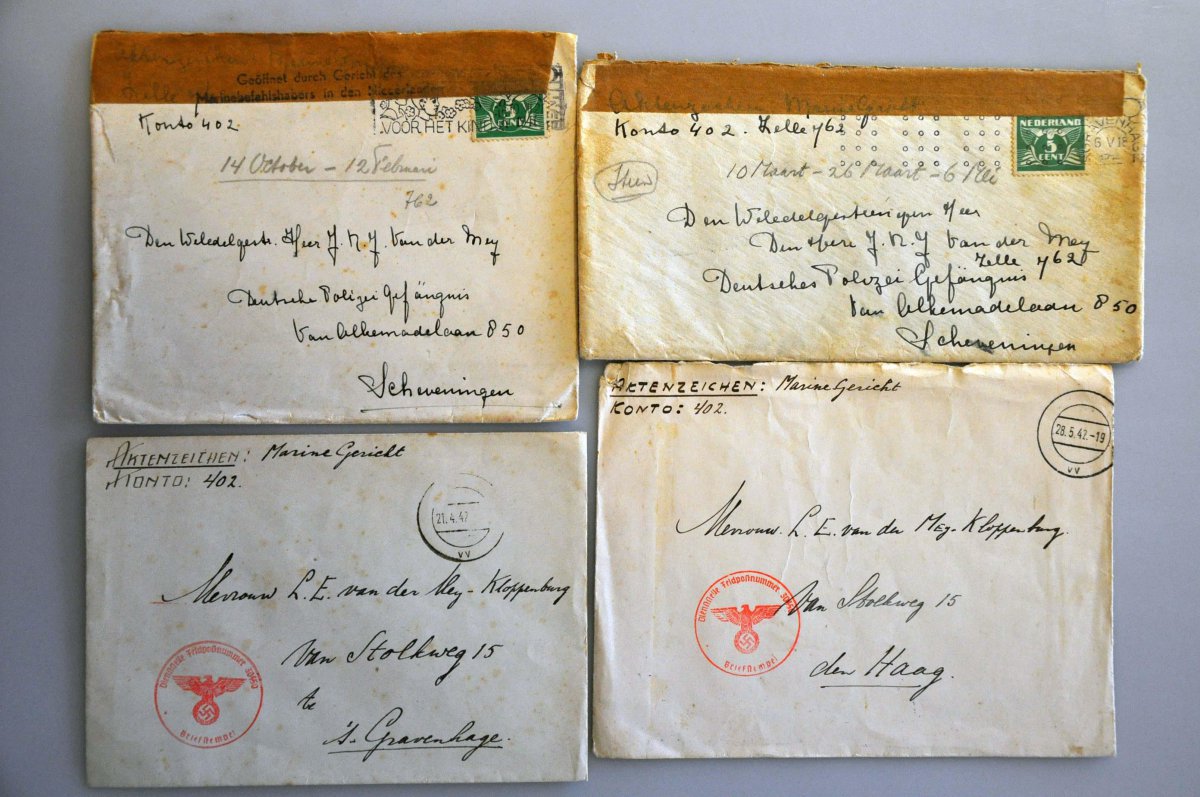 Geöffnet durch Gericht des
Marinebefehlshabers in den Niederlanden
Konto 402
VOOR HET KIND
5
14 October – 12 Februari
762
Den Weledelgestr. Heer J. N. J. Van der Mey
Deutsche Polizei Gefängnis
Van Alkemadelaan 850
Scheveningen
Aktenzeichen Marine Gericht
Konto 402. Zelle 762
NEDERLAND
5
CENT
10 Maart – 26 Maart – 6 Mei
Den Weledelgestrengen Heer
Den Heere J. N. J Van der Mey
Zelle 762
Deutsches Polizei Gefängnis
Van Alkemadelaan 850
Scheveningen
AKTENZEICHEN: Marine Gericht
KONTO: 402.
21.4.42
Mevrouw L. E. van der Mey-Kloppenburg
Van Stolkweg 15
te
's Gravenhage.
Dienststelle Feldpostnummer
Briefstempel
AKTENZEICHEN: Marine Gericht
KONTO: 402.
28.5.42.-19
Mevrouw. L. E. van der Mey-Kloppenburg.
Van Stolkweg 15
den Haag.
Dienststelle Feldpostnummer
Briefstempel